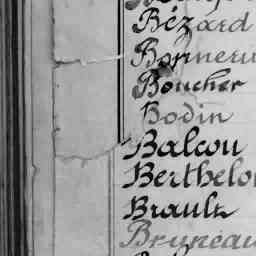 Bézard
Bonneru
Boucher
Bodin
Balcou
Berthelo
Brault
Bruneau